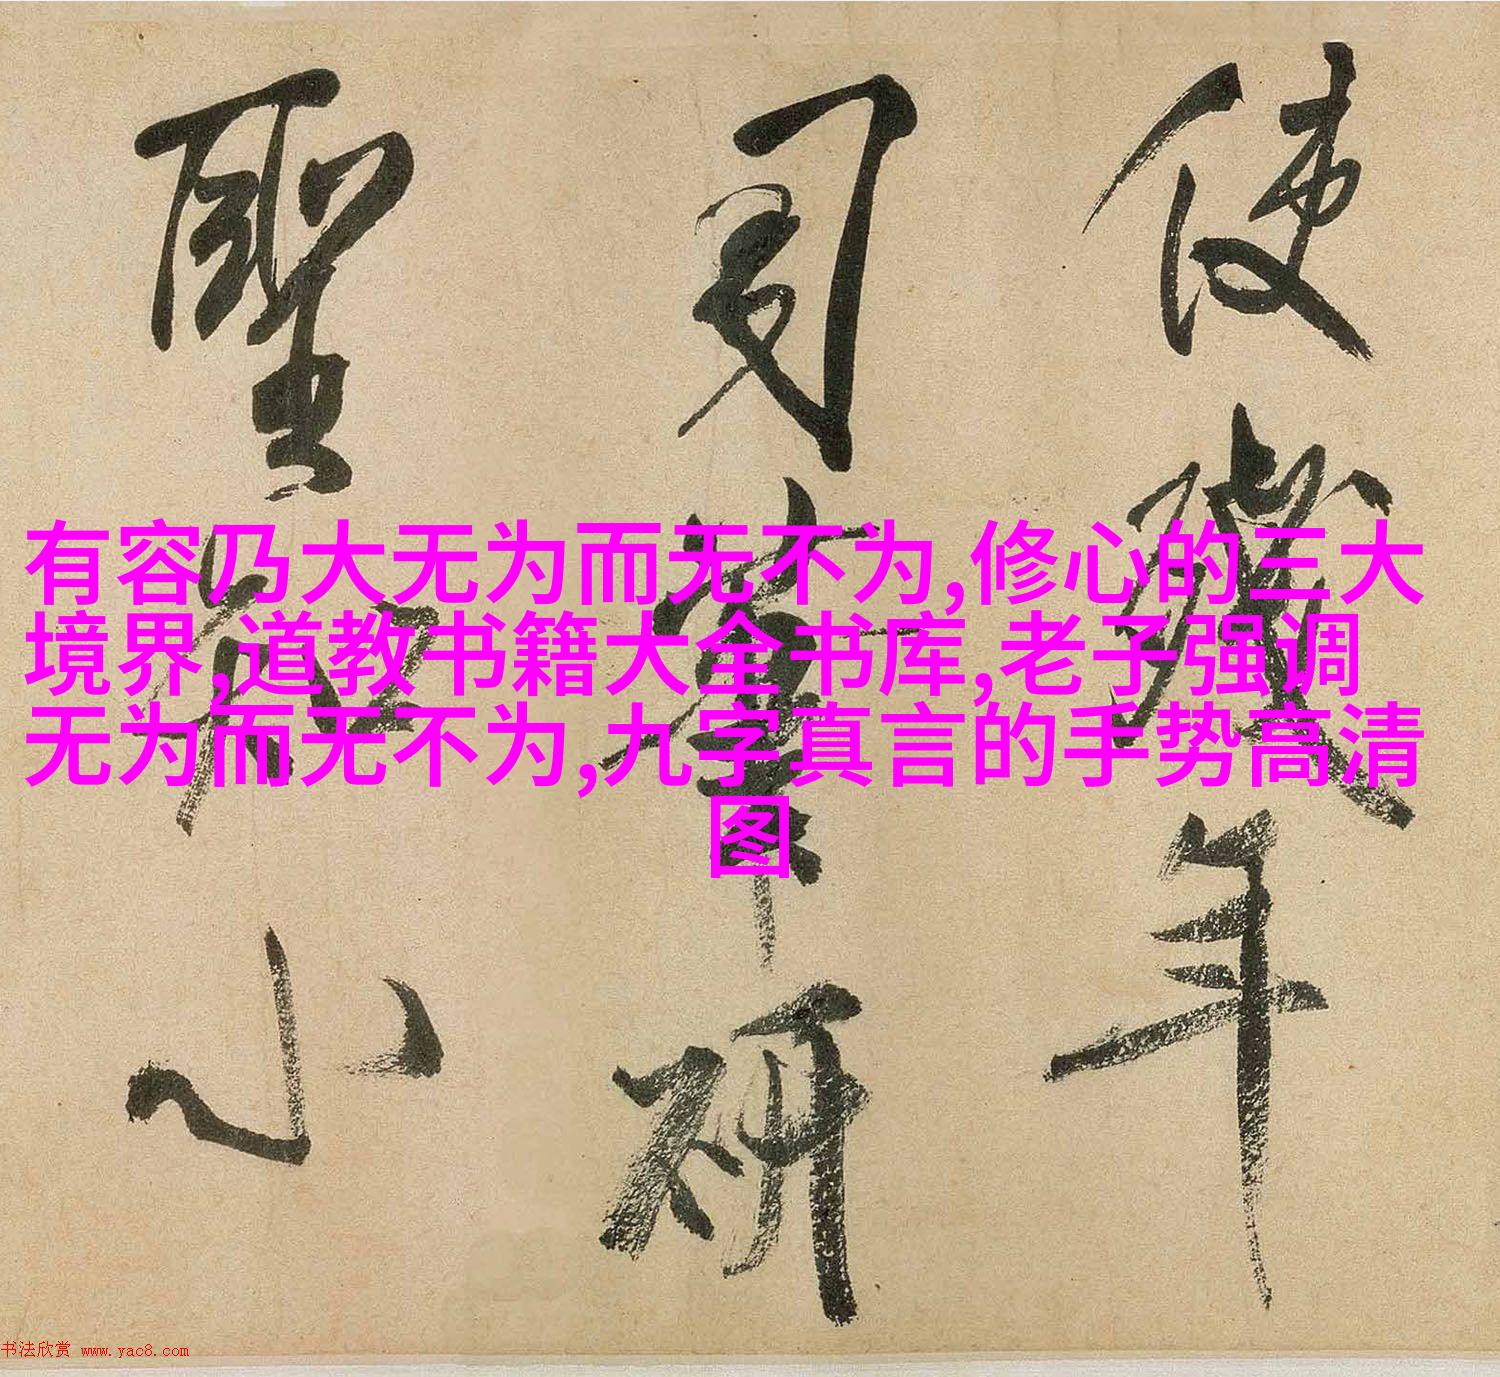 有容乃大无为而无不为,修心的三大
境界,道教书籍大全书库,老子强调
无为而无不为,九字真言的手势高清
图
使残年
司筆研
聖
小
书法欣赏 www.yac8.com